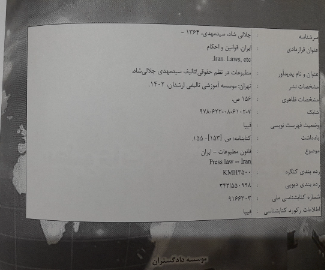 سرشناسه : جلالی شاد، سیدمهدی، ۱۳۶۴ -
عنوان قراردادی : ایران. قوانین و احکام
Iran. Laws, etc
عنوان و نام پدیدآور : مطبوعات در نظم حقوقی / سیدمهدی جلالی‌شاد
مشخصات نشر : تهران: موسسه آموزشی تالیفی ارشدان، ۱۴۰۳
مشخصات ظاهری : ۱۵۶ ص.
شابک
وضعیت فهرست نویسی : فیپا
یادداشت : کتابنامه: ص. [۱۵۳] - ۱۵۵
موضوع : قانون مطبوعات -- ایران
Press law -- Iran
رده بندی کنگره : KMH۳۵۰۰
رده بندی دیویی : ۳۴۳/۵۵۰۹۹۸
شماره کتابشناسی ملی
اطلاعات رکورد کتابشناسی : فیپا
موسسه دادگستران